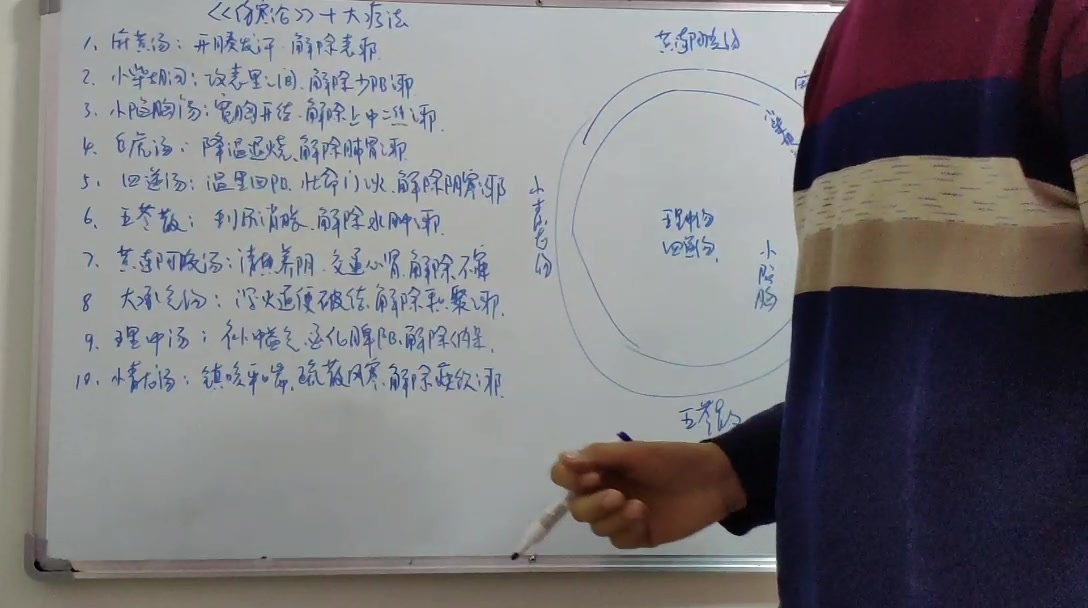 《伤寒论》十大疗法
1、麻黄汤：开腠发汗、解除表邪.
2、小柴胡汤：攻表里之间、解除少阳之邪
3、小陷胸汤：宽胸开结、解除上中二焦之邪.
4、白虎汤：降温退烧、解除肺胃之邪
5、四逆汤：温里回阳、壮命门火、解除阴寒之邪
6、五苓散：利尿消胀、解除水肿之邪.
7、黄连阿胶汤：清热养阴、交通心肾、解除不寐
8 大承气汤：泻火通便破结、解除积聚之邪.
9、理中汤：补中益气、运化脾阳、解除
10、小青龙汤：镇咳平喘、疏散风寒、解除痰饮之邪.
黄连阿胶汤
小柴胡
小青龙汤
理中汤
四逆汤
小陷胸
五苓散